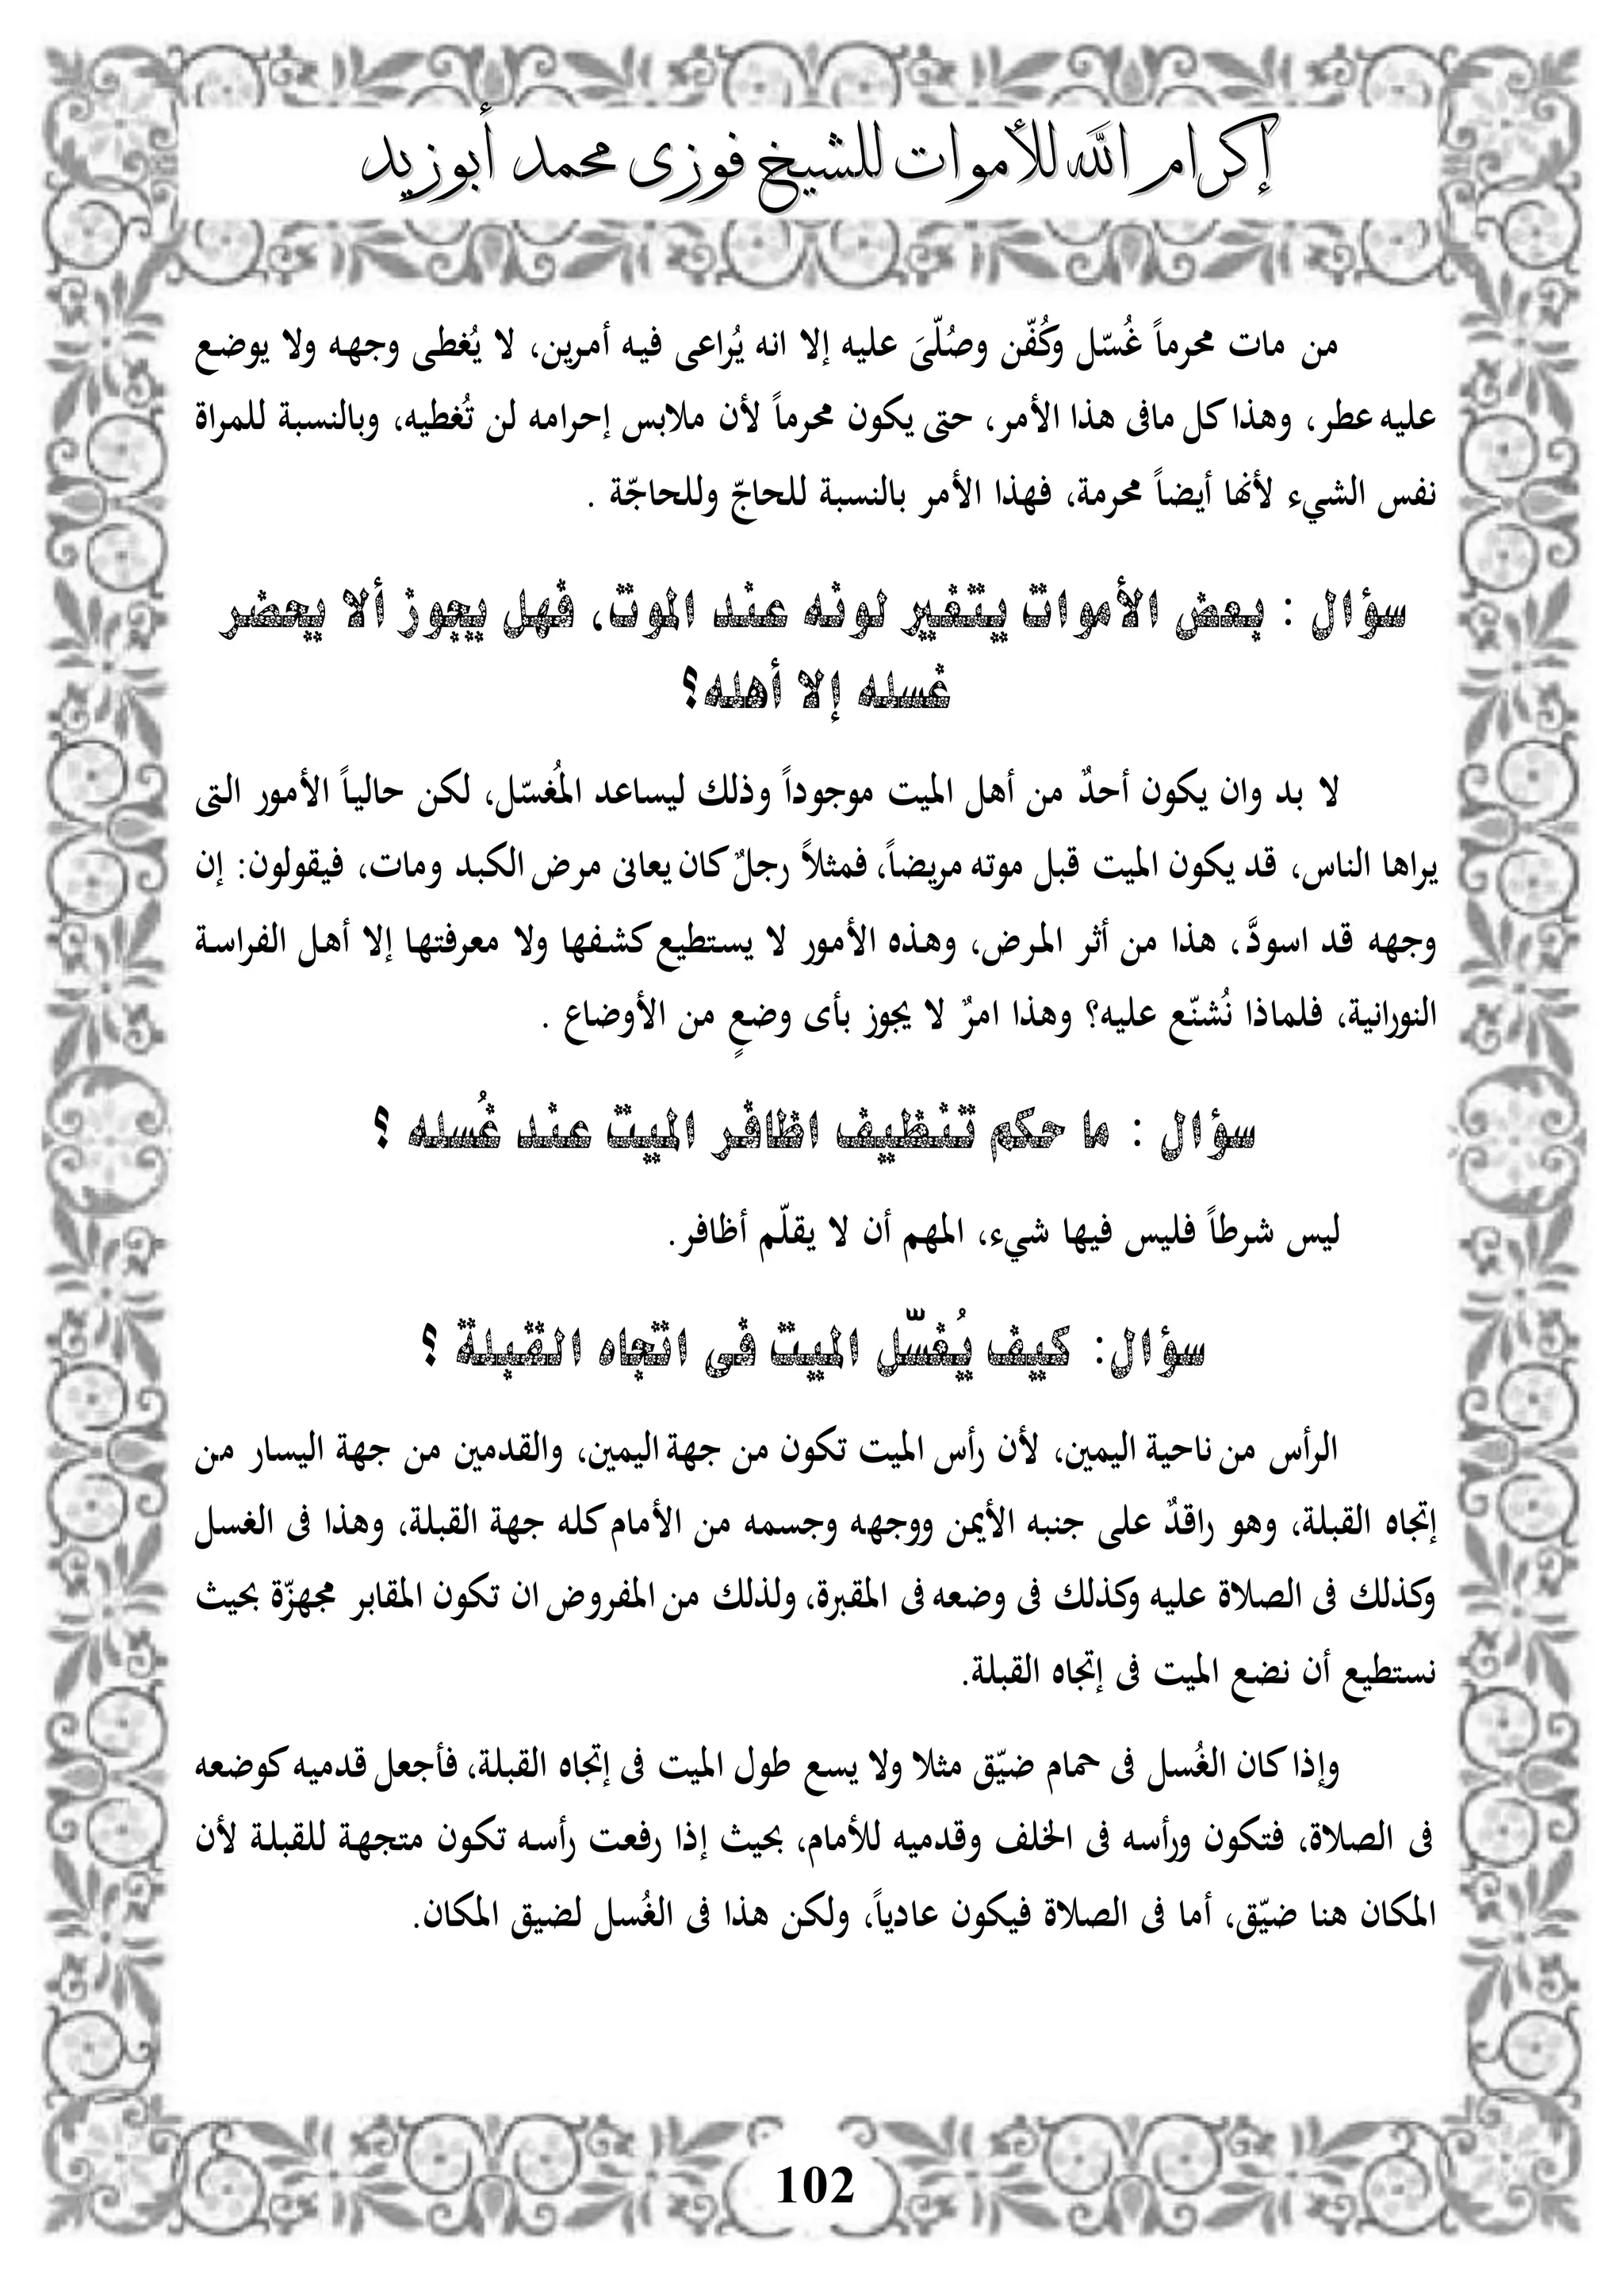 إكرام الله للأموات للشيخ فوزى محمد أبوزيد
من مات محرماً غُسّل وكُفّن وصُلّىَ عليه إلا انه يُراعى فيه أمرين، لا يُغطى وجهه ولا يوضع
عليه عطر، وهذا كل مافى هذا الأمر، حتى يكون محرماً لأن ملابس إحرامه لن تُغطيه، وبالنسبة للمراة
نفس الشيء لأنها أيضاً محرمة، فهذا الأمر بالنسبة للحاجّ وللحاجّة .
سؤال : بعض الأموات يتغير لونه عند الموت، فهل يجوز ألا يحضر
غسله إلا أهله؟
لا بد وان يكون أحدٌ من أهل الميت موجوداً وذلك ليساعد المُغسّل، لكن حالياً الأمور التى
يراها الناس، قد يكون الميت قبل موته مريضاً، فمثلاً رجلٌ كان يعانى مرض الكبد ومات، فيقولون: إن
وجهه قد اسودَّ، هذا من أثر المرض، وهذه الأمور لا يستطيع كشفها ولا معرفتها إلا أهل الفراسة
النورانية، فلماذا نُشنّع عليه؟ وهذا امرٌ لا يجوز بأى وضعٍ من الأوضاع .
سؤال : ما حكم تنظيف اظافر الميت عند غُسله ؟
ليس شرطاً فليس فيها شيء، المهم أن لا يقلّم أظافر.
سؤال: كيف يُغسّل الميت فى اتجاه القبلة ؟
الرأس من ناحية اليمين، لأن رأس الميت تكون من جهة اليمين، والقدمين من جهة اليسار من
إتجاه القبلة، وهو راقدٌ على جنبه الأيمن ووجهه وجسمه من الأمام كله جهة القبلة، وهذا فى الغسل
وكذلك فى الصلاة عليه وكذلك فى وضعه فى المقبرة، ولذلك من المفروض ان تكون المقابر مجهزّة بحيث
نستطيع أن نضع الميت فى إتجاه القبلة.
وإذا كان الغُسل فى حمام ضيّق مثلا ولا يسع طول الميت فى إتجاه القبلة، فأجعل قدميه كوضعه
فى الصلاة، فتكون ورأسه فى الخلف وقدميه للأمام، بحيث إذا رفعت رأسه تكون متجهة للقبلة لأن
المكان هنا ضيّق، أما فى الصلاة فيكون عادياً، ولكن هذا فى الغُسل لضيق المكان.
102